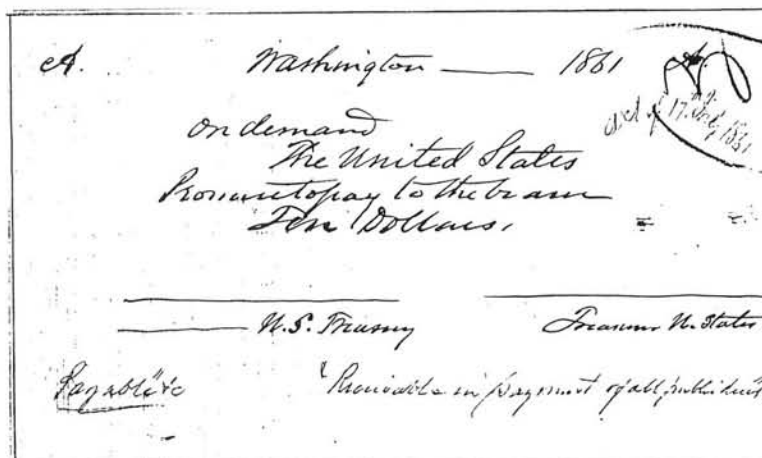 A.
Washington —— 1861
Act of 17th July, 1861
on demand
The United States
Promise to pay to the bearer
Ten Dollars.
U.S. Treasury
Treasurer U. States
Payable &c
Receivable in payment of all public dues